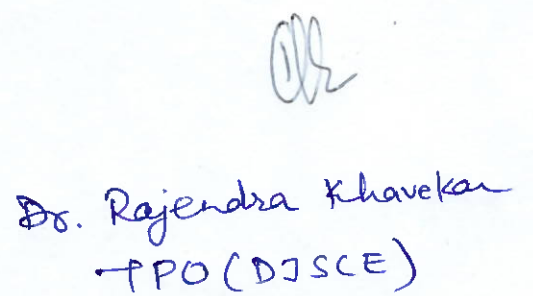 Dr. Rajendra Khavekar
TPO (DJSCE)